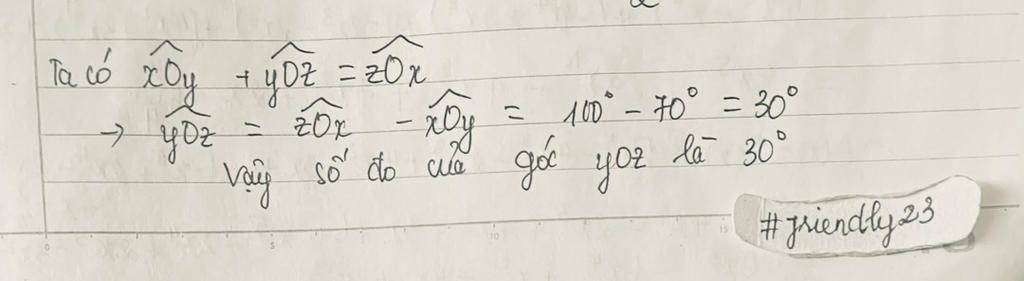 Ta có xOy + yOz = zOx
→ yOz = zOx - xOy = 100° - 70° = 30°
Vậy số đo của góc yOz là 30°
#friendly23
0 5 10 15